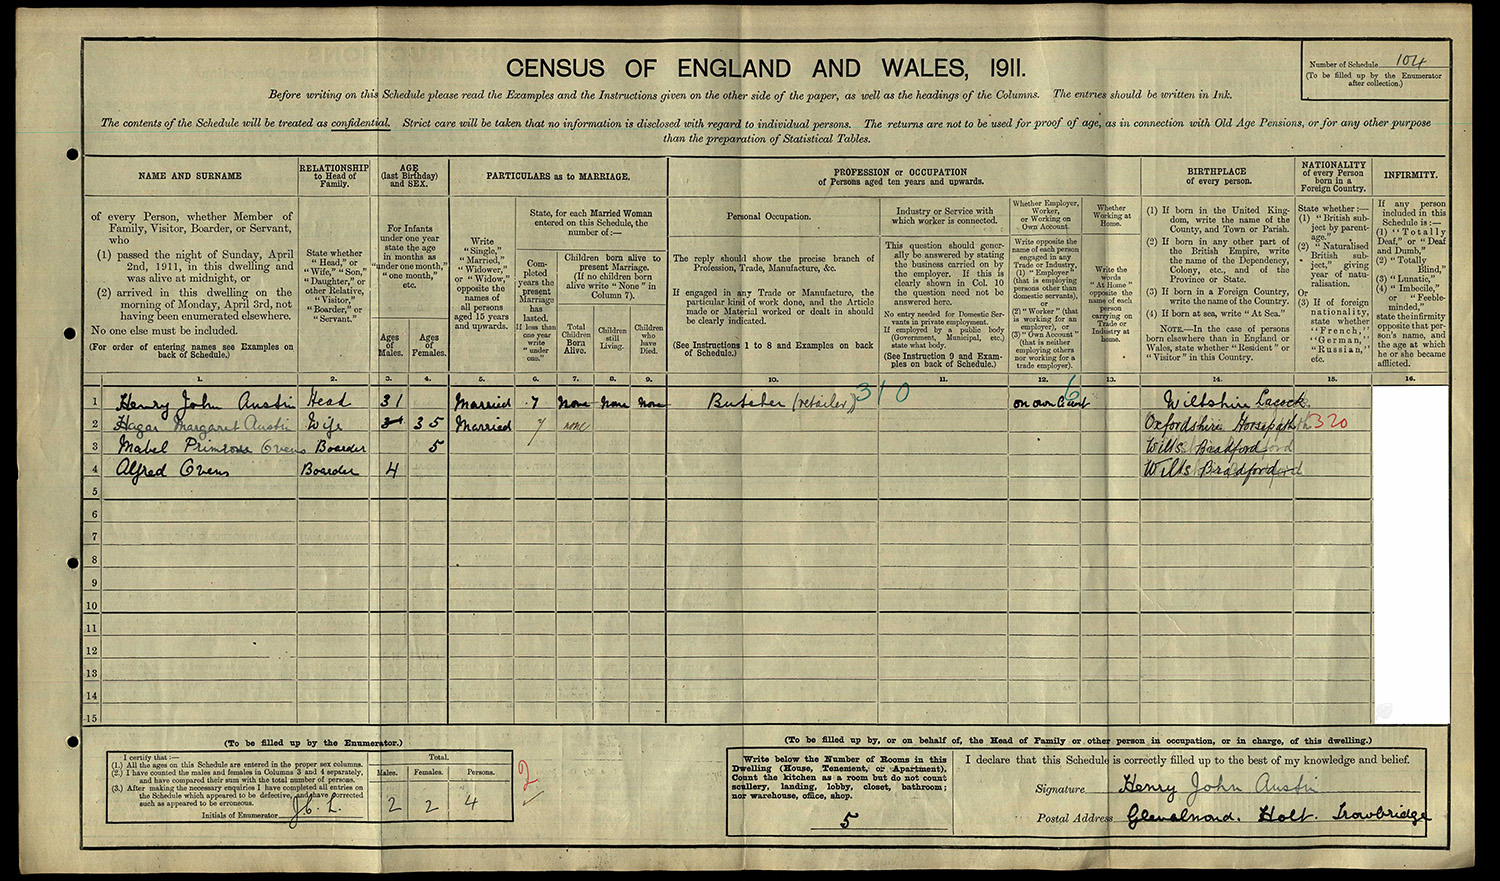 CENSUS OF ENGLAND AND WALES, 1911.
Number of Schedule 104
(To be filled up by the Enumerator
after collection.)
Before writing on this Schedule please read the Examples and the Instructions given on the other side of the paper, as well as the headings of the Columns. The entries should be written in Ink.
The contents of the Schedule will be treated as confidential. Strict care will be taken that no information is disclosed with regard to individual persons. The returns are not to be used for proof of age, as in connection with Old Age Pensions, or for any other purpose
than the preparation of Statistical Tables.
NAME AND SURNAME
of every Person, whether Member of
Family, Visitor, Boarder, or Servant,
who
(1) passed the night of Sunday, April
2nd, 1911, in this dwelling and
was alive at midnight, or
(2) arrived in this dwelling on the
morning of Monday, April 3rd, not
having been enumerated elsewhere.
No one else must be included.
(For order of entering names see Examples on
back of Schedule.)
RELATIONSHIP
to Head of
Family.
State whether
"Head," or
"Wife," "Son,"
"Daughter," or
other Relative,
"Visitor,"
"Boarder," or
"Servant."
AGE
(last Birthday)
and SEX.
For Infants
under one year
state the age
in months as
"under one month,"
"one month,"
etc.
Ages
of
Males.
Ages
of
Females.
PARTICULARS as to MARRIAGE.
Write
"Single,"
"Married,"
"Widower,"
or "Widow,"
opposite the
names of
all persons
aged 15 years
and upwards.
State, for each Married Woman
entered on this Schedule, the
number of:—
Completed
years the
present
Marriage
has
lasted.
If less than
one year
write
"under
one."
Children born alive to
present Marriage.
(If no children born
alive write "None" in
Column 7).
Total
Children
Born
Alive.
Children
still
Living.
Children
who
have
Died.
PROFESSION or OCCUPATION
of Persons aged ten years and upwards.
Personal Occupation.
The reply should show the precise branch of
Profession, Trade, Manufacture, &c.
If engaged in any Trade or Manufacture, the
particular kind of work done, and the Article
made or Material worked or dealt in should
be clearly indicated.
(See Instructions 1 to 8 and Examples on back
of Schedule.)
Industry or Service with
which worker is connected.
This question should generally
be answered by stating
the business carried on by
the employer. If this is
clearly shown in Col. 10
the question need not be
answered here.
No entry needed for Domestic Servants
in private employment.
If employed by a public body
(Government, Municipal, etc.)
state what body.
(See Instruction 9 and Examples
on back of Schedule.)
Whether Employer,
Worker,
or Working on
Own Account.
Write opposite the
name of each person
engaged in any
Trade or Industry,
(1) "Employer"
(that is employing
persons other than
domestic servants),
or
(2) "Worker" (that
is working for an
employer), or
(3) "Own Account"
(that is neither
employing others
nor working for a
trade employer).
Whether
Working at
Home.
Write the
words
"At Home"
opposite the
name of each
person
carrying on
Trade or
Industry at
home.
BIRTHPLACE
of every person.
(1) If born in the United Kingdom,
write the name of the
County, and Town or Parish.
(2) If born in any other part of
the British Empire, write
the name of the Dependency,
Colony, etc., and of the
Province or State.
(3) If born in a Foreign Country,
write the name of the Country.
(4) If born at sea, write "At Sea."
NOTE.—In the case of persons
born elsewhere than in England or
Wales, state whether "Resident" or
"Visitor" in this Country.
NATIONALITY
of every Person
born in a
Foreign Country.
State whether:—
(1) "British subject
by parentage."
(2) "Naturalised
British
subject," giving
year of naturalisation.
Or
(3) If of foreign
nationality,
state whether
"French,"
"German,"
"Russian,"
etc.
INFIRMITY.
If any person
included in this
Schedule is:—
(1) "Totally
Deaf," or "Deaf
and Dumb,"
(2) "Totally
Blind,"
(3) "Lunatic,"
(4) "Imbecile,"
or "Feeble-minded,"
state the infirmity
opposite that person's
name, and
the age at which
he or she became
afflicted.
1. 2. 3. 4. 5. 6. 7. 8. 9. 10. 11. 12. 13. 14. 15. 16.
1 Henry John Austin Head 31 Married 7 None None None Butcher (retailer) 310 on own 6 Wiltshire Lacock
2 Hagar Margaret Austin Wife 35 Married 7 none Oxfordshire Horsepath 320
3 Mabel Primrose Ovens Boarder 5 Wilts Bradford
4 Alfred Ovens Boarder 4 Wilts Bradford
5
6
7
8
9
10
11
12
13
14
15
(To be filled up by the Enumerator.)
I certify that:—
(1.) All the ages on this Schedule are entered in the proper sex columns.
(2.) I have counted the males and females in Columns 3 and 4 separately,
and have compared their sum with the total number of persons.
(3.) After making the necessary enquiries I have completed all entries on
the Schedule which appeared to be defective, and have corrected
such as appeared to be erroneous.
Initials of Enumerator
Total.
Males. Females. Persons.
2 2 4
2
(To be filled up by, or on behalf of, the Head of Family or other person in occupation, or in charge, of this dwelling.)
Write below the Number of Rooms in this
Dwelling (House, Tenement, or Apartment).
Count the kitchen as a room but do not count
scullery, landing, lobby, closet, bathroom;
nor warehouse, office, shop.
5
I declare that this Schedule is correctly filled up to the best of my knowledge and belief.
Signature Henry John Austin
Postal Address Holt. Trowbridge